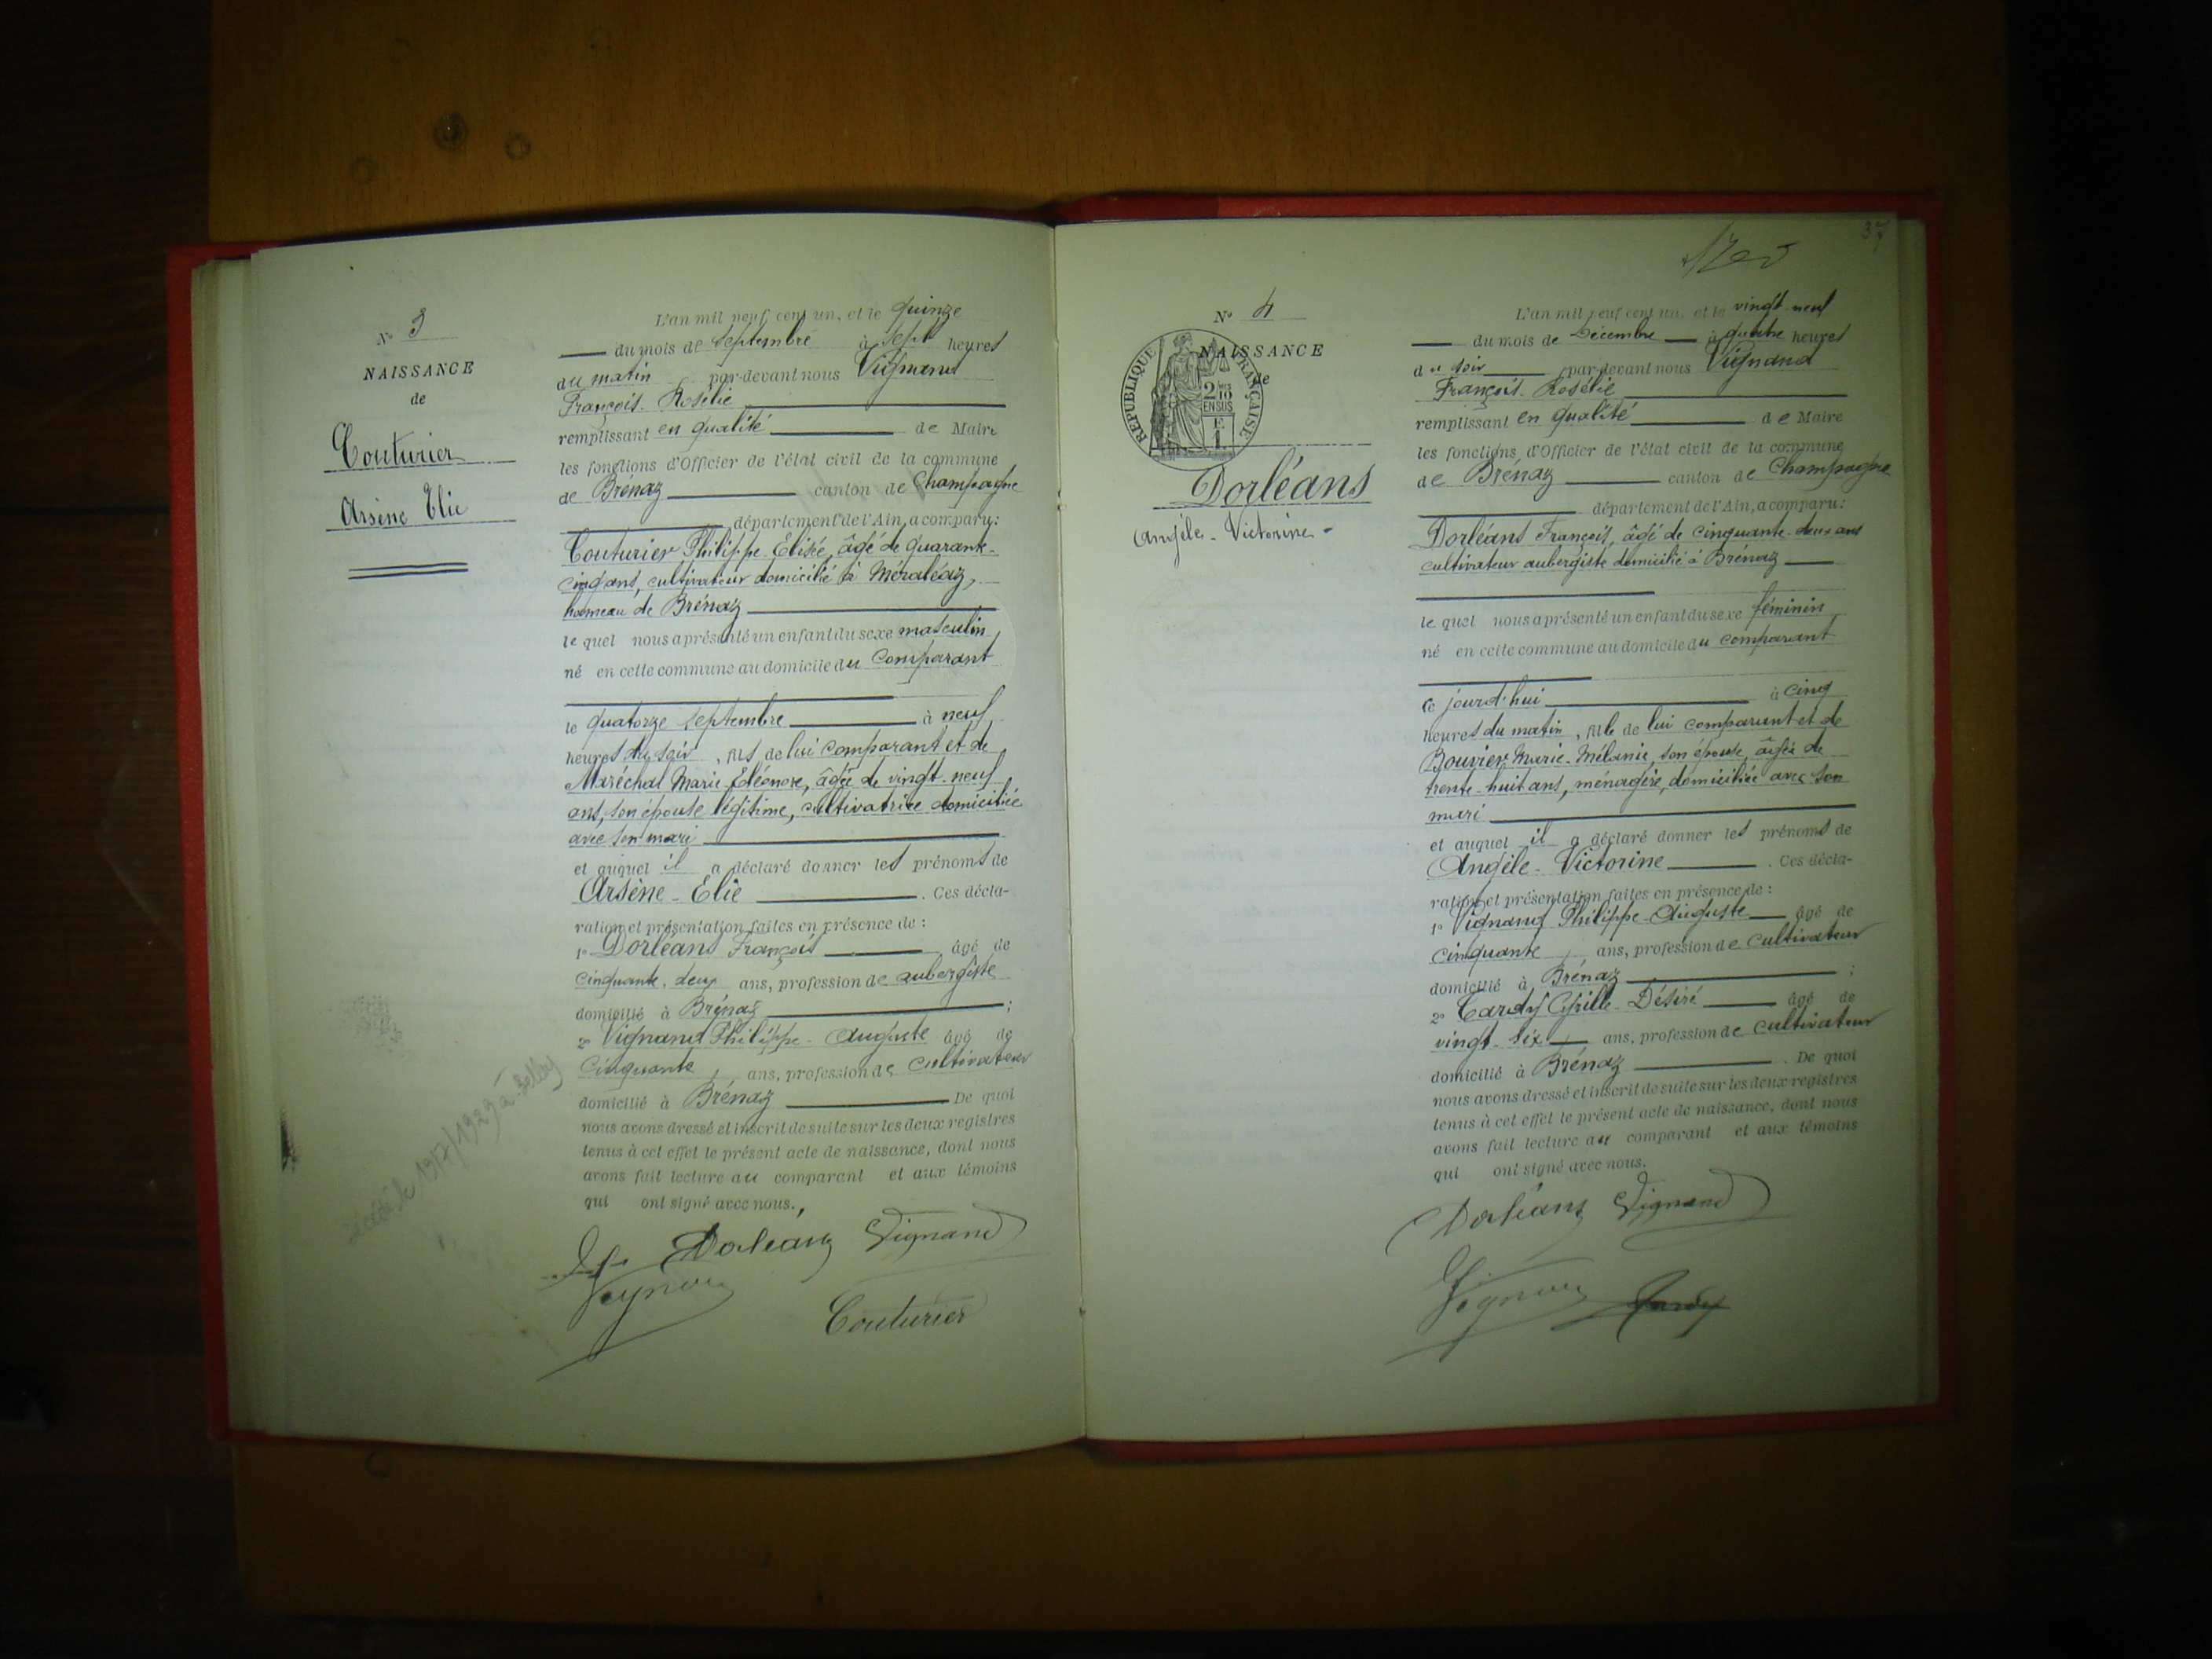 N° 3
NAISSANCE
de
Couturier
Arsène Elie
L'an mil neuf cent un, et le quinze
du mois de Septembre à sept heures
du matin, par-devant nous Vignand
François-Rosélie
remplissant en qualité de Maire
les fonctions d'Officier de l'état civil de la commune
de Brénaz canton de Champagne
département de l'Ain, a comparu:
Couturier Philippe-Elisée, âgé de quarante-
cinq ans, cultivateur domicilié à Méraléaz,
hameau de Brénaz
lequel nous a présenté un enfant du sexe masculin
né en cette commune au domicile du Comparant
le quatorze Septembre à neuf
heures du soir, fils de lui comparant et de
Maréchal Marie-Eléonore, âgée de vingt-neuf
ans, son épouse légitime, cultivatrice domiciliée
avec son mari
et auquel il a déclaré donner les prénoms de
Arsène-Elie. Ces décla-
ration et présentation faites en présence de :
1° Dorléans François âgé de
cinquante-deux ans, profession de aubergiste
domicilié à Brénaz ;
2° Vignand Philippe-Auguste âgé de
Cinquante, ans, profession de cultivateur
domicilié à Brénaz De quoi
nous avons dressé et inscrit de suite sur les deux registres
tenus à cet effet le présent acte de naissance, dont nous
avons fait lecture au comparant et aux témoins
qui ont signé avec nous.
Dorléans Vignand
Vignand
Couturier
décédé le 13/7/1929 à Belley
37
N° 4
NAISSANCE
de
REPUBLIQUE FRANÇAISE
2/10
EN SUS
F.
1.
Dorléans
Angèle-Victorine-
L'an mil neuf cent un, et le vingt-neuf
du mois de Décembre à quatre heures
du soir, par-devant nous Vignand
François-Rosélie
remplissant en qualité de Maire
les fonctions d'Officier de l'état civil de la commune
de Brénaz canton de Champagne
département de l'Ain, a comparu:
Dorléans François, âgé de cinquante-deux ans
cultivateur aubergiste domicilié à Brénaz
lequel nous a présenté un enfant du sexe féminin
né en cette commune au domicile du comparant
ce jourd'hui à cinq
heures du matin, fille de lui comparant et de
Bouvier Marie-Mélanie, son épouse, âgée de
trente-huit ans, ménagère, domiciliée avec son
mari
et auquel il a déclaré donner les prénoms de
Angèle-Victorine. Ces décla-
ration et présentation faites en présence de :
1° Vignand Philippe-Auguste âgé de
cinquante, ans, profession de cultivateur
domicilié à Brénaz ;
2° Tardy Cyrille-Désiré âgé de
vingt-six ans, profession de cultivateur
domicilié à Brénaz. De quoi
nous avons dressé et inscrit de suite sur les deux registres
tenus à cet effet le présent acte de naissance, dont nous
avons fait lecture au comparant et aux témoins
qui ont signé avec nous.
Dorléans Vignand
Vignand Tardy